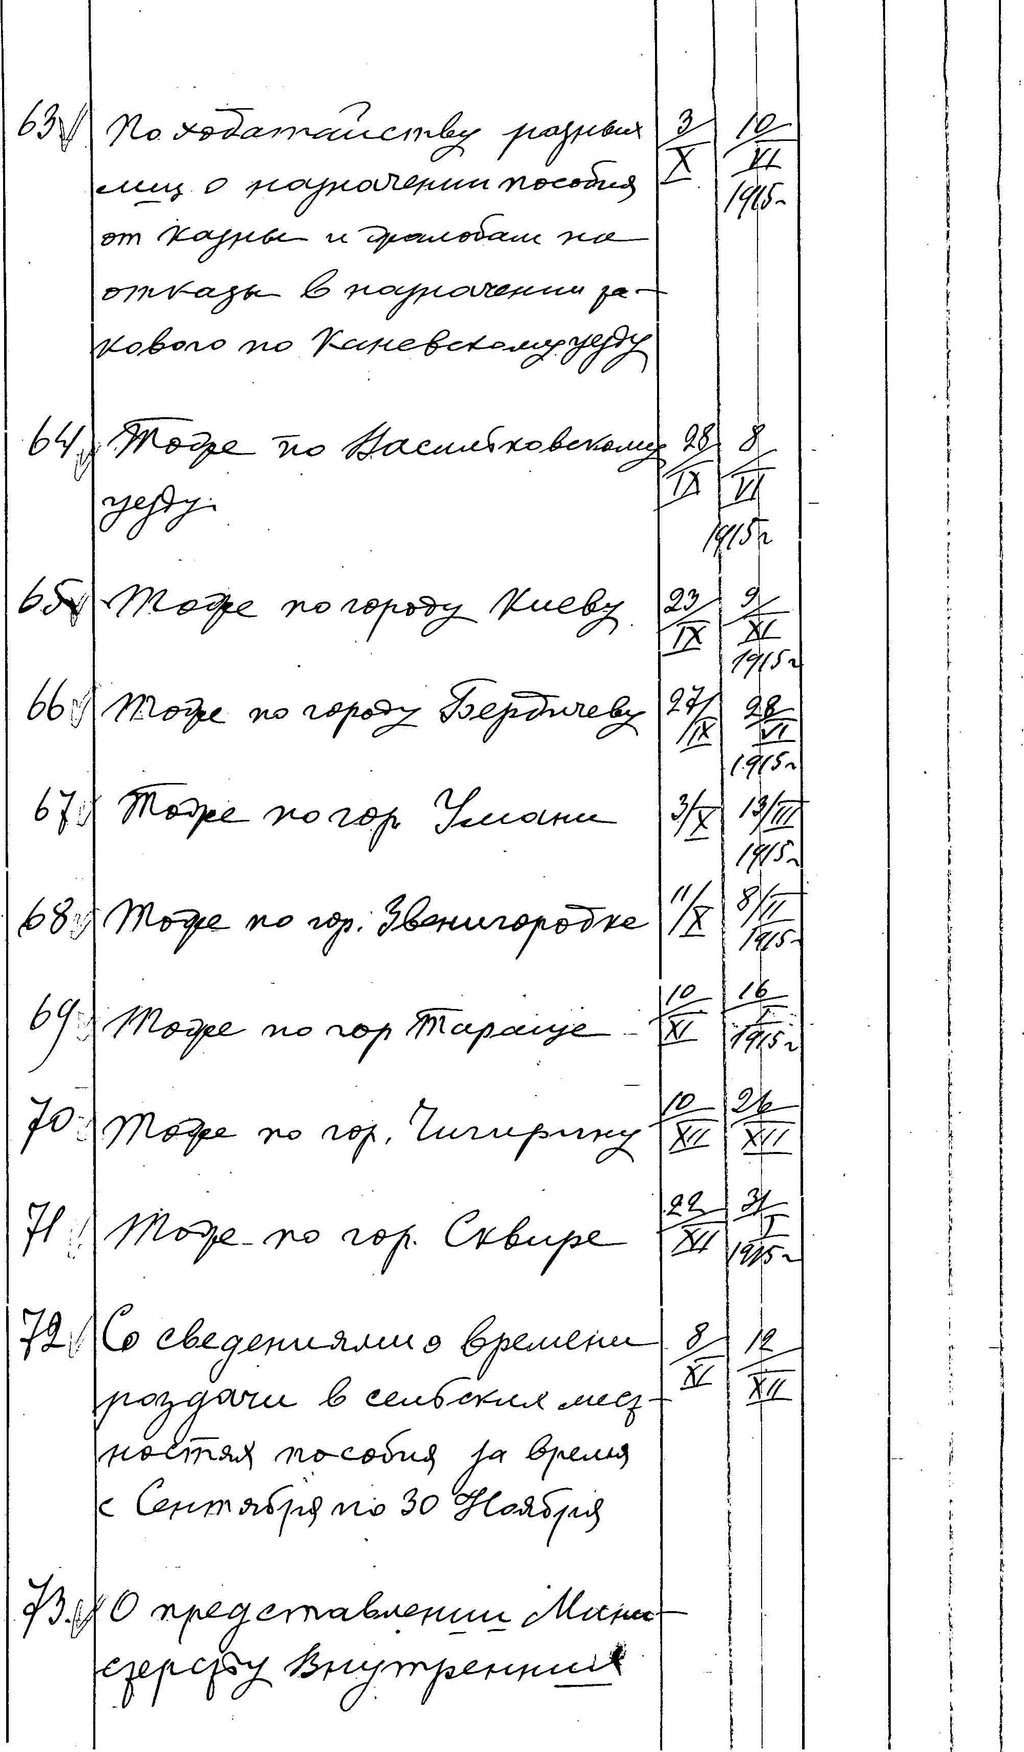 63 По ходатайству разных 3/X 10/VI
лиц о назначении пособия 1915г
от казны и жалобам на
отказы в назначении та-
кового по Каневскому уезду
64 Тоже по Васильковскому 28/IX 8/VI
уезду. 1915г
65 Тоже по городу Киеву 23/IX 9/XI
1915г
66 Тоже по городу Бердичеву 27/IX 28/VI
1915г
67 Тоже по гор Умани 3/X 13/III
1915г
68 Тоже по гор. Звенигородке 11/X 8/II
1915г
69 Тоже по гор Тараще 10/XI 16/I
1915г
70 Тоже по гор. Чигирину 10/XII 26/XII
71 Тоже по гор. Сквире 22/XII 31/I
1915г
72 Со сведениями о времени 8/XI 12/XII
раздачи в сельских мест-
ностях пособия за время
с Сентября по 30 Ноября
73. О представлении Мини-
стерству Внутренних